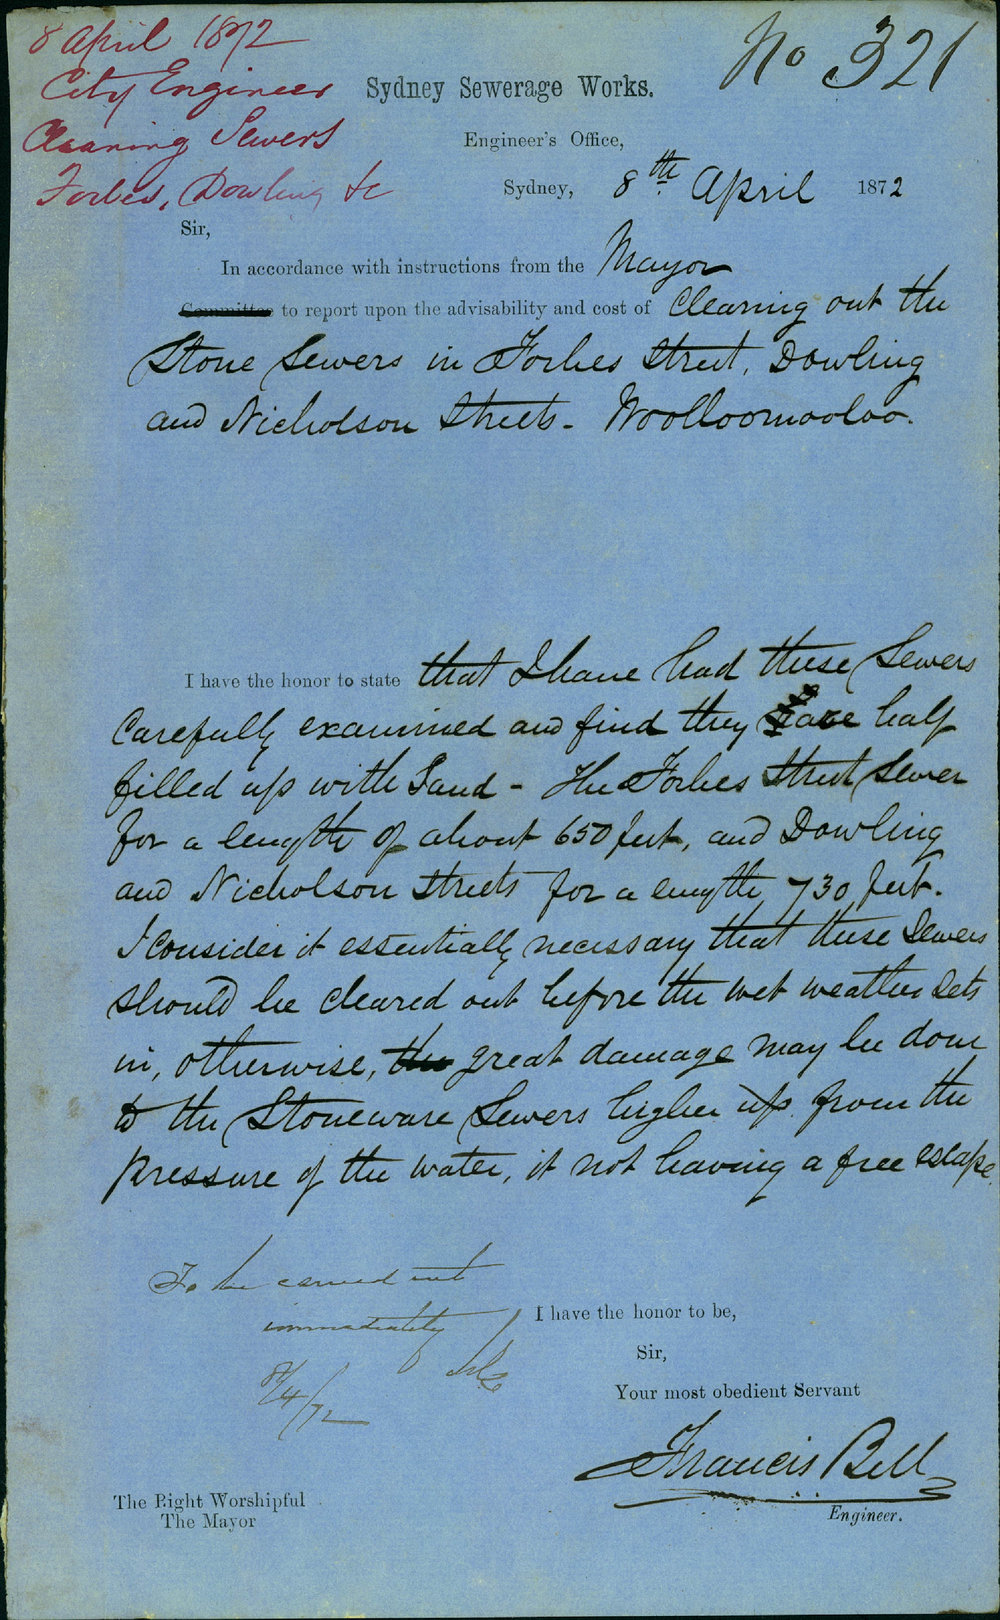 8 April 1872
City Engineer
Cleaning Sewers
Forbes, Dowling &c
No 321
Sydney Sewerage Works.
Engineer's Office,
Sydney, 8th April 1872
Sir,
In accordance with instructions from the Mayor
Committee to report upon the advisability and cost of Clearing out the
Stone Sewers in Forbes Street, Dowling
and Nicholson Streets - Woolloomooloo.
I have the honor to state that I have had these Sewers
Carefully examined and find they are half
filled up with Sand - The Forbes Street Sewer
for a length of about 650 feet, and Dowling
and Nicholson Streets for a length 730 feet.
I consider it essentially necessary that these Sewers
should be cleared out before the wet weather sets
in, otherwise, the great damage may be done
to the Stoneware Sewers higher up from the
pressure of the water, it not having a free escape.
To be carried out
immediately
8/4/72
I have the honor to be,
Sir,
Your most obedient Servant
Francis Bell
Engineer.
The Right Worshipful
The Mayor